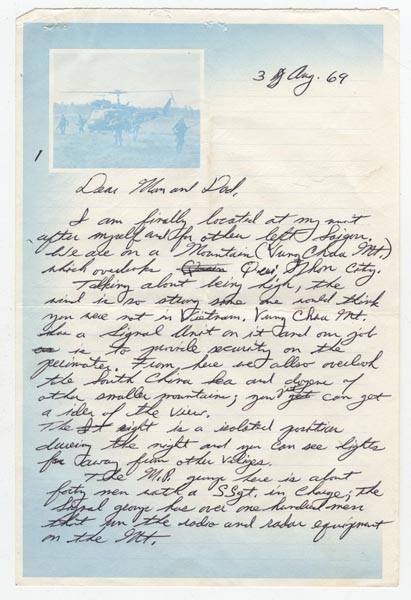 3 Aug. 69
1
Dear Mom and Dad,
I am finally located at my unit
after myself and for other left Saigon.
We are on a Mountain (Vung Chau Mt.)
which overlooks Qui Nhon City.
Talking about being high, the
wind is so strong one would think
you were not in Vietnam. Vung Chau Mt.
has a Signal Unit on it and our job
is to provide security on the
perimeter. From here we also overlook
the South China Sea and dozens of
other smaller mountains; you can get
a idea of the view.
The night is a isolated position
during the night and you can see lights
far away from other
The M.P. group here is about
forty men with a S.Sgt. in charge; the
Signal group has over one hundred men
that run the radio and radar equipment
on the Mt.